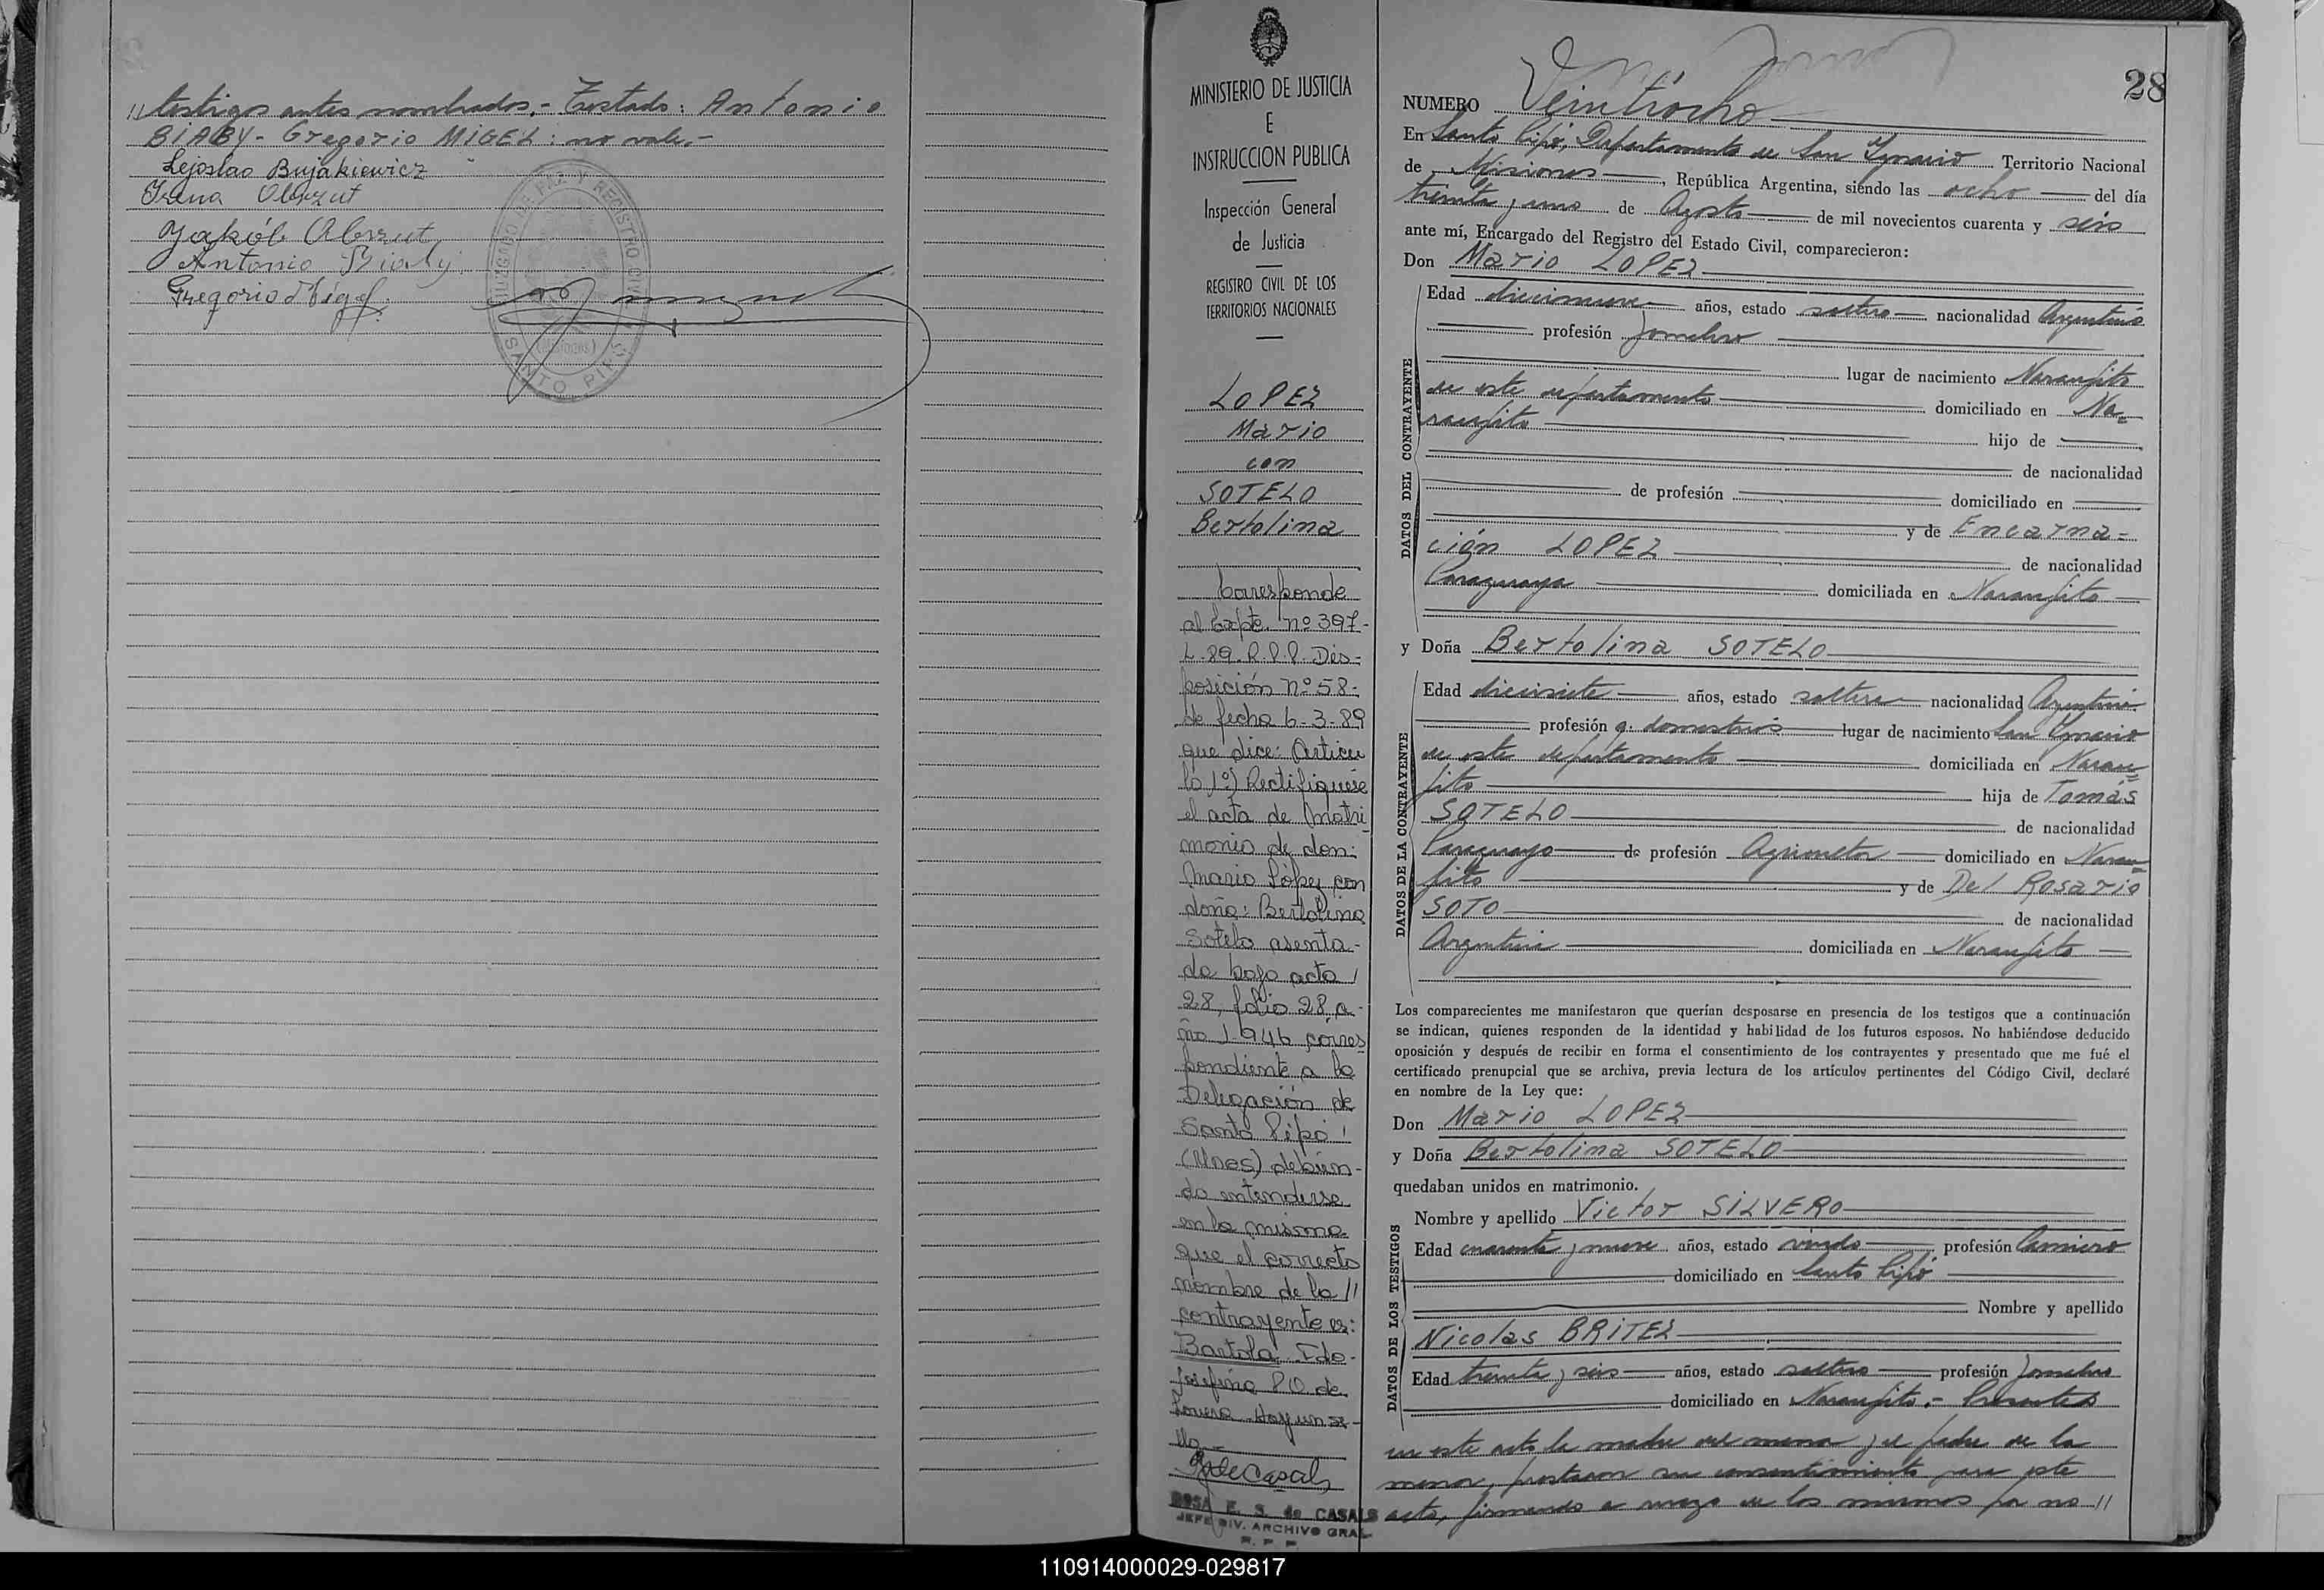 // testigos antes nombrados.- Testado: Antonio
BIALBY - Gregorio MIGEL: no vale.-
Bujakiewicz
Irena Obrzut
Jakób Obrzut
Antonio Bialy
Gregorio Migel
JUZGADO DE PAZ Y REGISTRO CIVIL
(MISIONES)
SANTO PIPO
MINISTERIO DE JUSTICIA
E
INSTRUCCION PUBLICA
Inspección General
de Justicia
REGISTRO CIVIL DE LOS
TERRITORIOS NACIONALES
LOPEZ
Mario
con
SOTELO
Bertolina
Corresponde
al Expte. nº 397-
L-89. R.P.P. Dis-
posición nº 58-
de fecha 6-3-89
que dice: Articu
lo 1º) Rectifiquese
el acta de Matri
monio de don:
Mario López con
doña: Bertolina
Sotelo asenta-
da bajo acta /
28, folio 28, a-
ño 1.946 corres
pondiente a la
Delegación de
Santo Pipó /
(Mnes) debien-
do entenderse
en la misma
que el correcto
nombre de la //
contrayente es:
Bartola. Fdo.
Josefina P.O. de
Hay un se-
llo-
ROSA E. S. de CASALS
JEFE DIV. ARCHIVO GRAL
R. P. P.
28
NUMERO Veintiocho
En Santo Pipó, Departamento de San Ignacio Territorio Nacional
de Misiones, República Argentina, siendo las ocho del día
treinta y uno de Agosto de mil novecientos cuarenta y seis
ante mí, Encargado del Registro del Estado Civil, comparecieron:
Don Mario LOPEZ
DATOS DEL CONTRAYENTE
Edad diecinueve años, estado soltero nacionalidad Argentino
profesión Jornalero
lugar de nacimiento Naranjito
de este departamento domiciliado en Na=
ranjito hijo de
de nacionalidad
de profesión domiciliado en
y de Encarna=
ción LOPEZ de nacionalidad
Paraguaya domiciliada en Naranjito
y Doña Bertolina SOTELO
DATOS DE LA CONTRAYENTE
Edad diecisiete años, estado soltera nacionalidad Argentina
profesión q. domesticos lugar de nacimiento San Ignacio
de este departamento domiciliada en Naran=
jito hija de Tomás
SOTELO de nacionalidad
Paraguayo de profesión Agricultor domiciliado en Naran=
jito y de Del Rosario
SOTO de nacionalidad
Argentina domiciliada en Naranjito
Los comparecientes me manifestaron que querían desposarse en presencia de los testigos que a continuación
se indican, quienes responden de la identidad y habilidad de los futuros esposos. No habiéndose deducido
oposición y después de recibir en forma el consentimiento de los contrayentes y presentado que me fué el
certificado prenupcial que se archiva, previa lectura de los artículos pertinentes del Código Civil, declaré
en nombre de la Ley que:
Don Mario LOPEZ
y Doña Bertolina SOTELO
quedaban unidos en matrimonio.
DATOS DE LOS TESTIGOS
Nombre y apellido Victor SILVERO
Edad cuarenta y nueve años, estado viudo profesión Carnicero
domiciliado en Santo Pipó
Nombre y apellido
Nicolas BRITEZ
Edad treinta y seis años, estado soltero profesión Jornalero
domiciliado en Naranjito.- Presentes
en este acto la madre del menor y el padre de la
menor, prestaron su consentimiento para este
acto, firmando a ruego de los mismos por no //
110914000029-029817